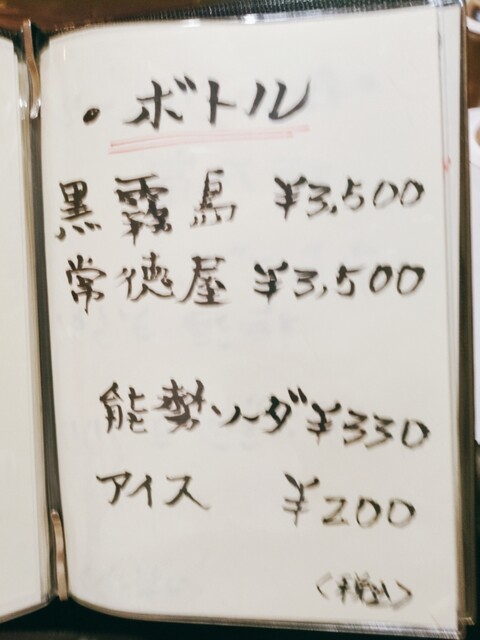 ・ボトル
黒霧島 ¥3,500
常徳屋 ¥3,500
能勢ソーダ ¥330
アイス ¥200